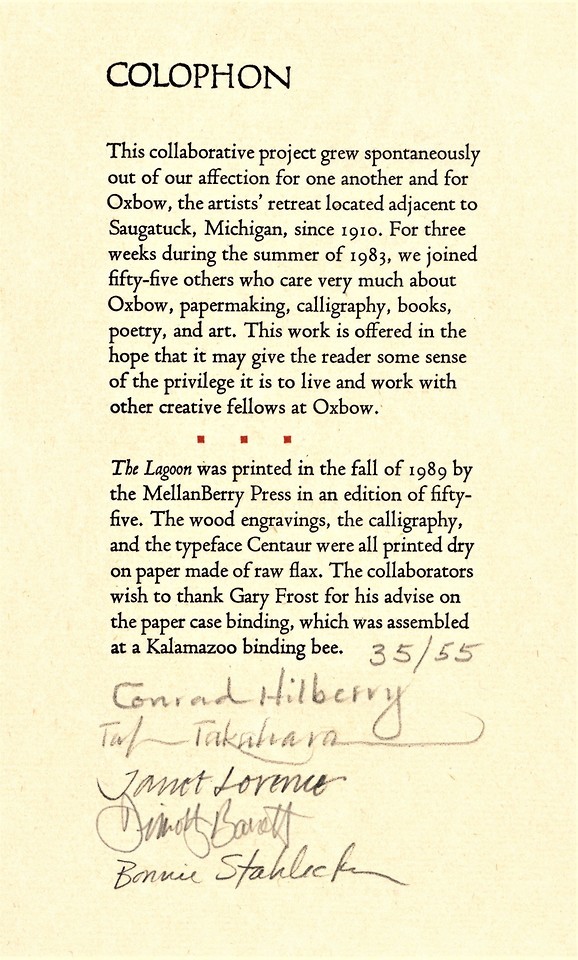 COLOPHON
This collaborative project grew spontaneously
out of our affection for one another and for
Oxbow, the artists' retreat located adjacent to
Saugatuck, Michigan, since 1910. For three
weeks during the summer of 1983, we joined
fifty-five others who care very much about
Oxbow, papermaking, calligraphy, books,
poetry, and art. This work is offered in the
hope that it may give the reader some sense
of the privilege it is to live and work with
other creative fellows at Oxbow.
The Lagoon was printed in the fall of 1989 by
the MellanBerry Press in an edition of fifty-
five. The wood engravings, the calligraphy,
and the typeface Centaur were all printed dry
on paper made of raw flax. The collaborators
wish to thank Gary Frost for his advise on
the paper case binding, which was assembled
at a Kalamazoo binding bee. 35/55
Conrad Hilberry
Takahara
Janet Lorence
Timothy Barrett
Bonnie Stahlecker